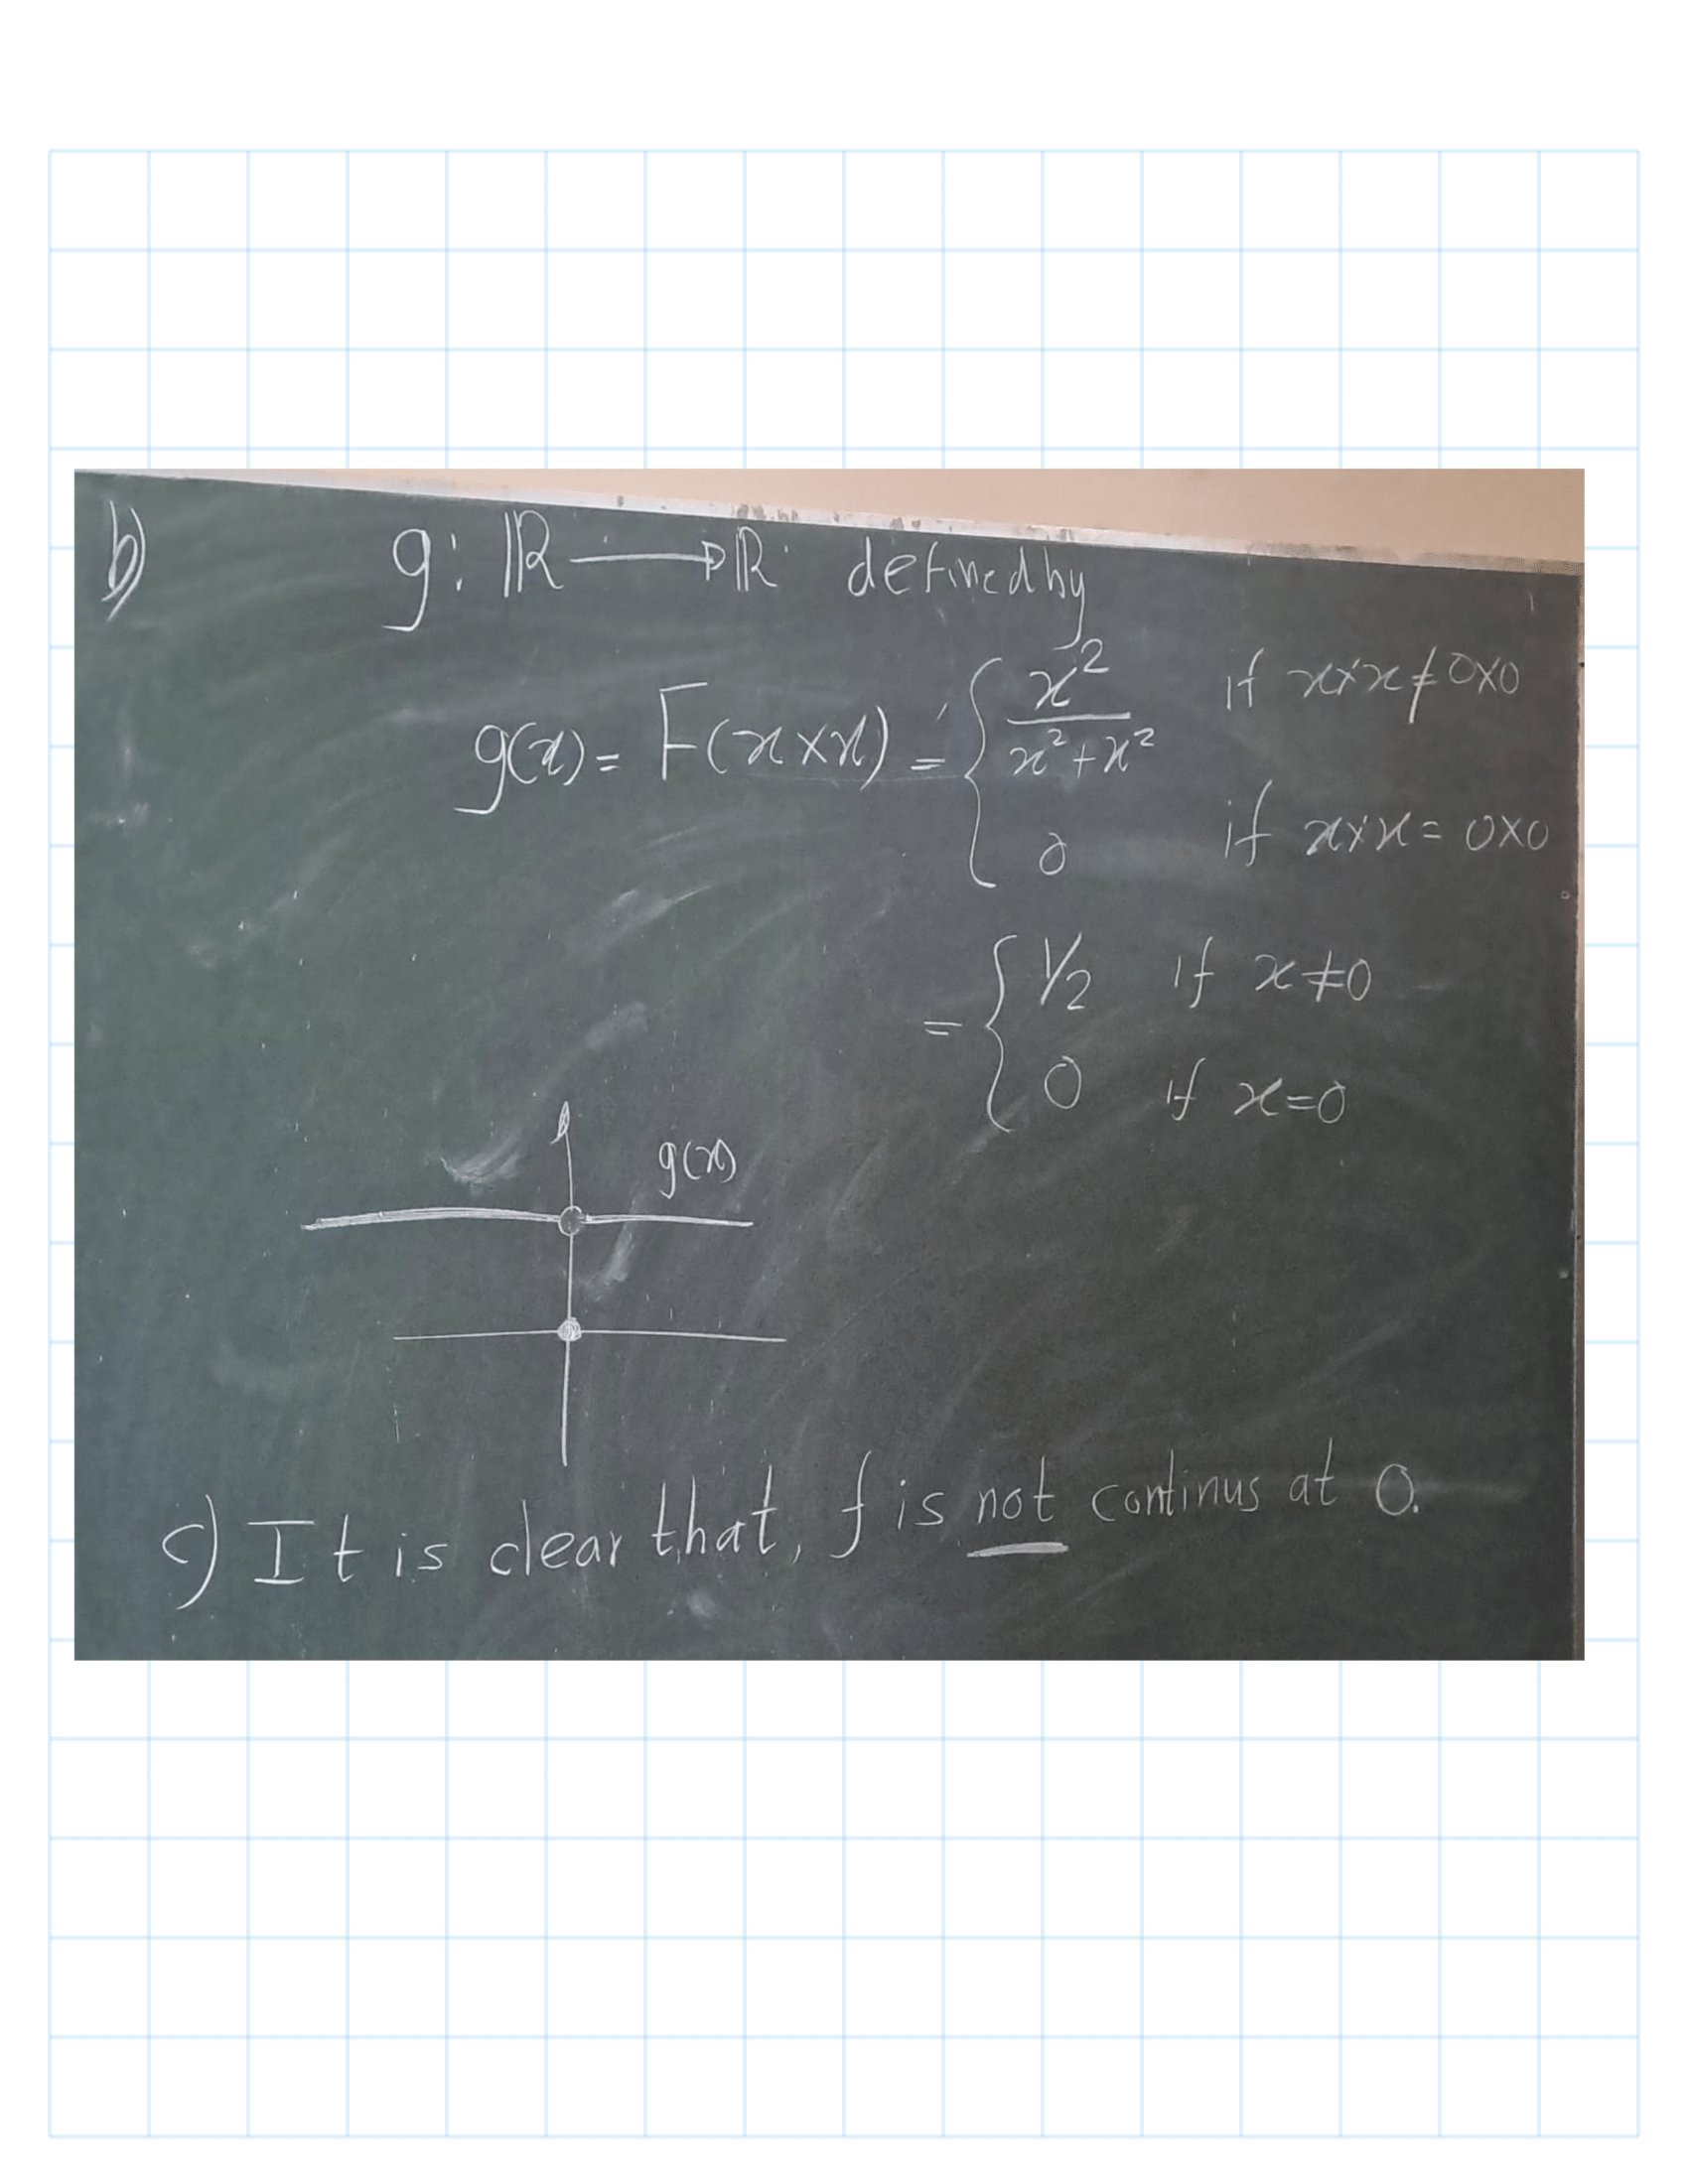 b) g: ℝ → ℝ defined by
g(x) = F(x×x) = { x²/(x²+x²) if x×x ≠ 0×0
0 if x×x = 0×0
= { 1/2 if x≠0
0 if x=0
g(x)
c) It is clear that, f is not continus at 0.